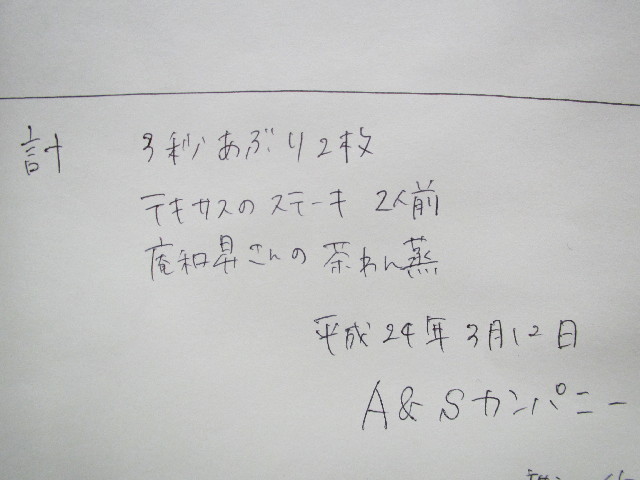 計 3秒あぶり2枚
テキサスのステーキ 2人前
庵和昇さんの茶わん蒸
平成24年3月12日
A&Sカンパニー